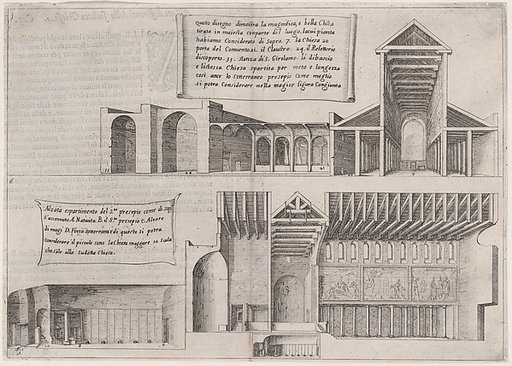 Questo disegno dimostra la magnifica, e bella Chiesa
tirata in maiesta conparte del luogo, la cui pianta
habbiamo Considerato di Sopra. 7. la Chiesa 20
porta del Convento. 21. il Claustro. 29. il Refettorio
discoperto. 31. stanza di S. Girolamo. lo di bascio
e l'istessa Chiesa spartita per meza e longezza
così anco lo sonterraneo presepio come meglio
si potra Considerare nella magior figura Congiunta
Alzata e partimento del S.mo presepio come di sop.
s'accennato. A. Natività. B. il S.mo presepio C. Altare
di magi D. sonterraneo e di questo si potra
considerare il piccolo sotto la Chiesa maggiore 12 Scala
che sale alla sudetta Chiesa.